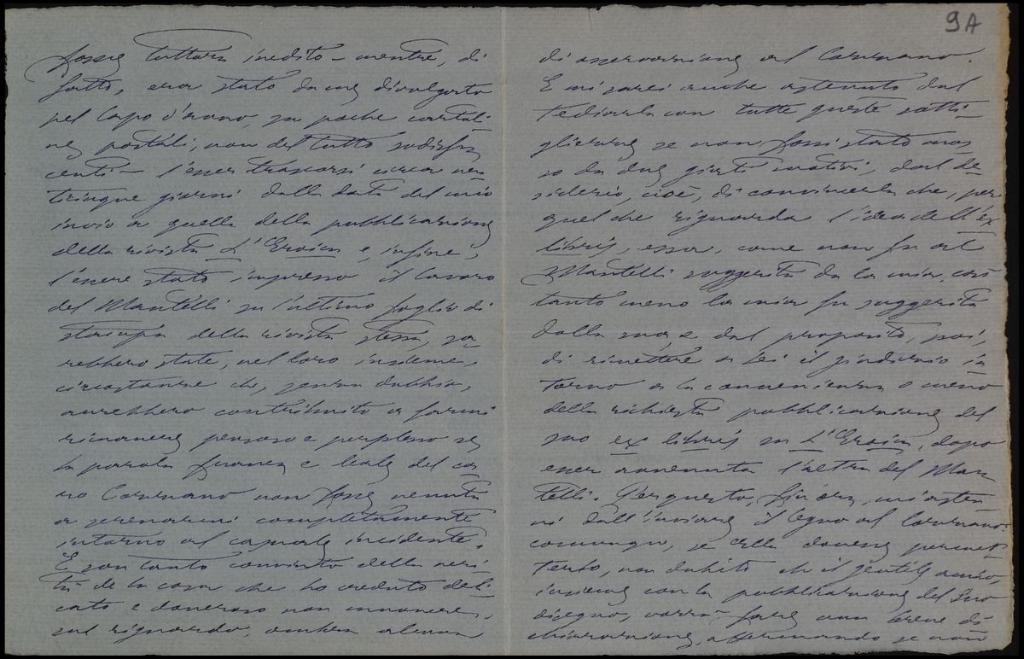 fosse tuttora inedito – mentre, di
fatto, era stato da me divulgato
pel Capo d'anno, su poche cartoli-
ne postali, non del tutto sodisfa-
centi – l'esser trascorsi circa ven-
ticinque giorni dalla data del mio
invio a quella della pubblicazione
della rivista L'Eroica e, infine,
l'essere stato impresso il lavoro
del Mantelli su l'ultimo foglio di
stampa della rivista stessa, sa-
rebbero state, nel loro insieme,
circostanze che, senza dubbio,
avrebbero contribuito a farmi
rimanere pensoso e perplesso se
la parola franca e leale del ca-
ro Cozzani non fosse venuta
a serenarmi completamente
intorno al casuale incidente.
E son tanto convinto della veri-
tà de la cosa che ho creduto deli-
cato e doveroso non muovere,
sul riguardo, ombra alcuna
9A
di osservazione al
E mi sarei anche astenuto dal
tediarla con tutte queste sotti-
gliezze se non fossi stato mos-
so da due giusti motivi, dal de-
siderio, cioè, di convincerla che, per
quel che riguarda l'idea dell'ex
libris, essa, come non fu al
Mantelli suggerita da la mia, così
tanto meno la mia fu suggerita
dalla sua, e dal proposito, poi,
di rimettere a Lei il giudizio in-
torno a la convenienza o meno
della richiesta pubblicazione del
mio ex libris su L'Eroica, dopo
esser avvenuta l'altra del Man-
telli. Per questo, finora, mi asten-
ni dall'inviare il legno al
comunque, se Ella dovesse permet-
terlo, non dubito che il gentile amico,
insieme con la pubblicazione del Suo
disegno, vorrà fare una breve di-
chiarazione, affermando se non